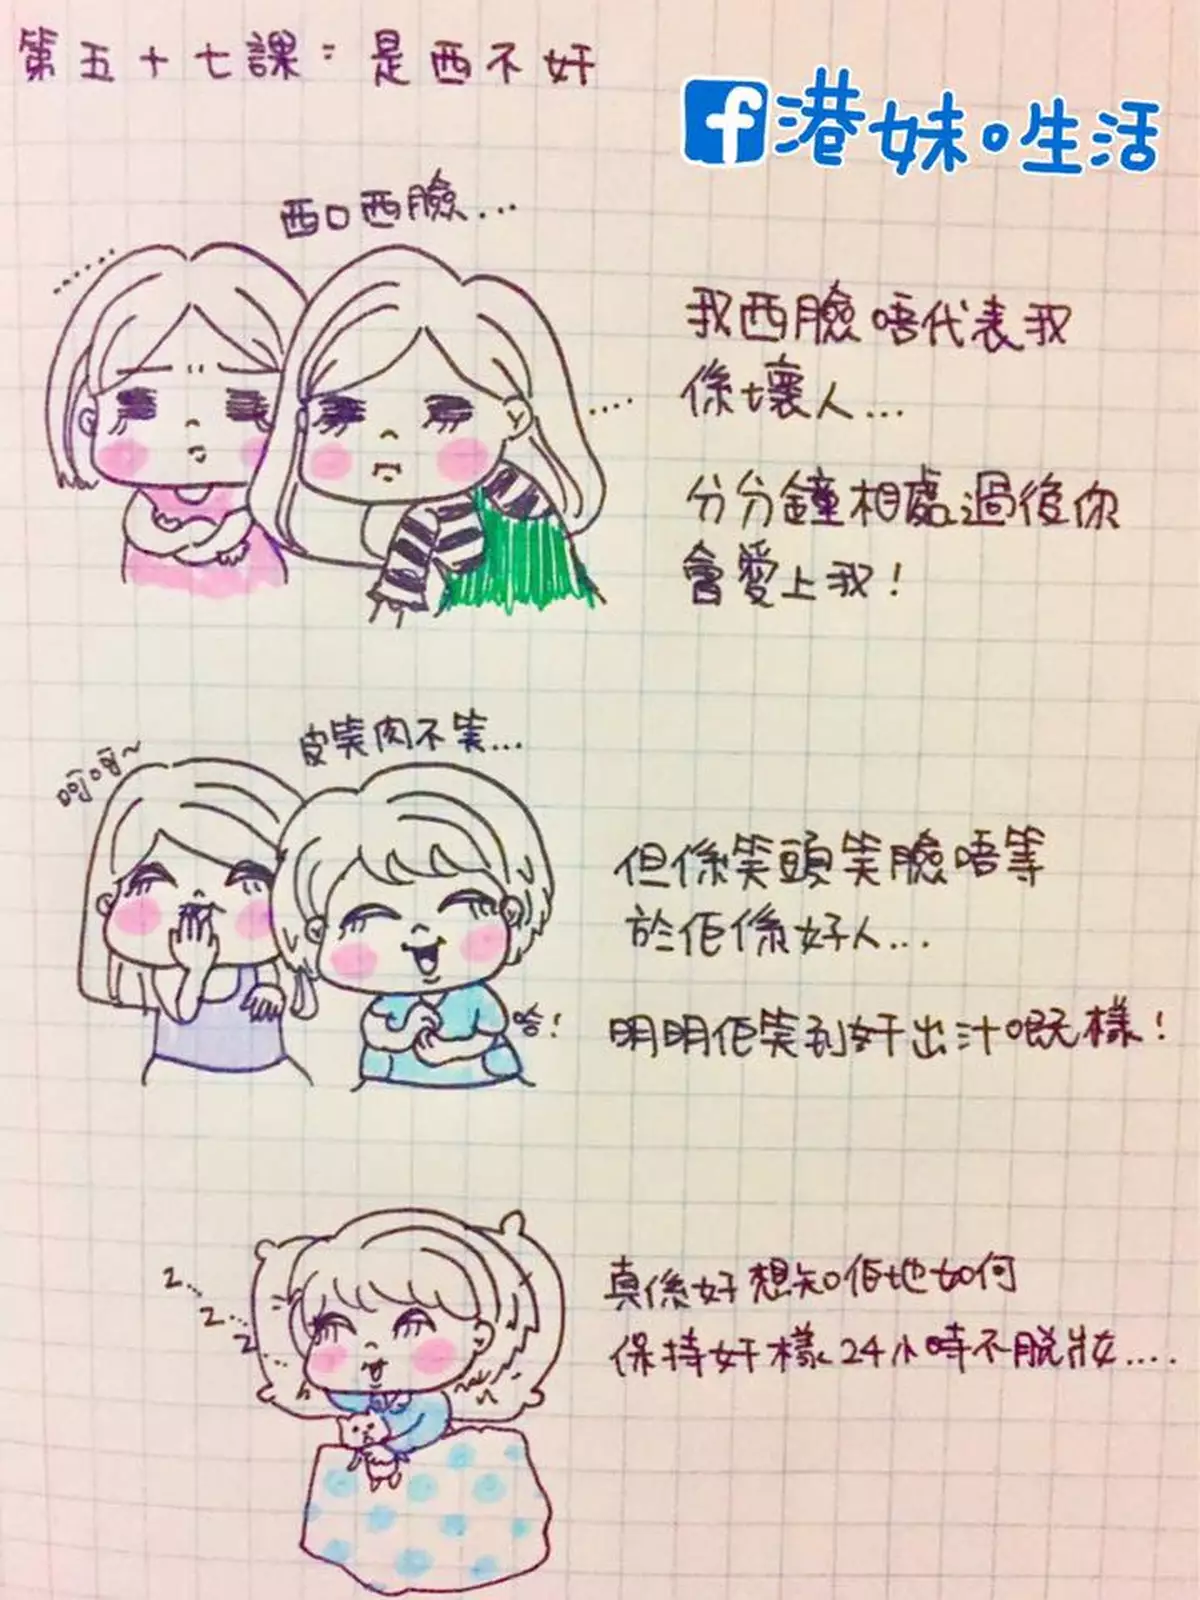 第五十七課：是西不奸
港妹の生活
西口西臉...
我西臉唔代表我
係壞人...
分分鐘相處過後你
會愛上我！
皮笑肉不笑...
呵呵~
但係笑頭笑臉唔等
於佢係好人...
哈！
明明佢笑到奸出汁嘅樣！
z...
z...
z...
真係好想知佢地如何
保持奸樣24小時不脫妝....